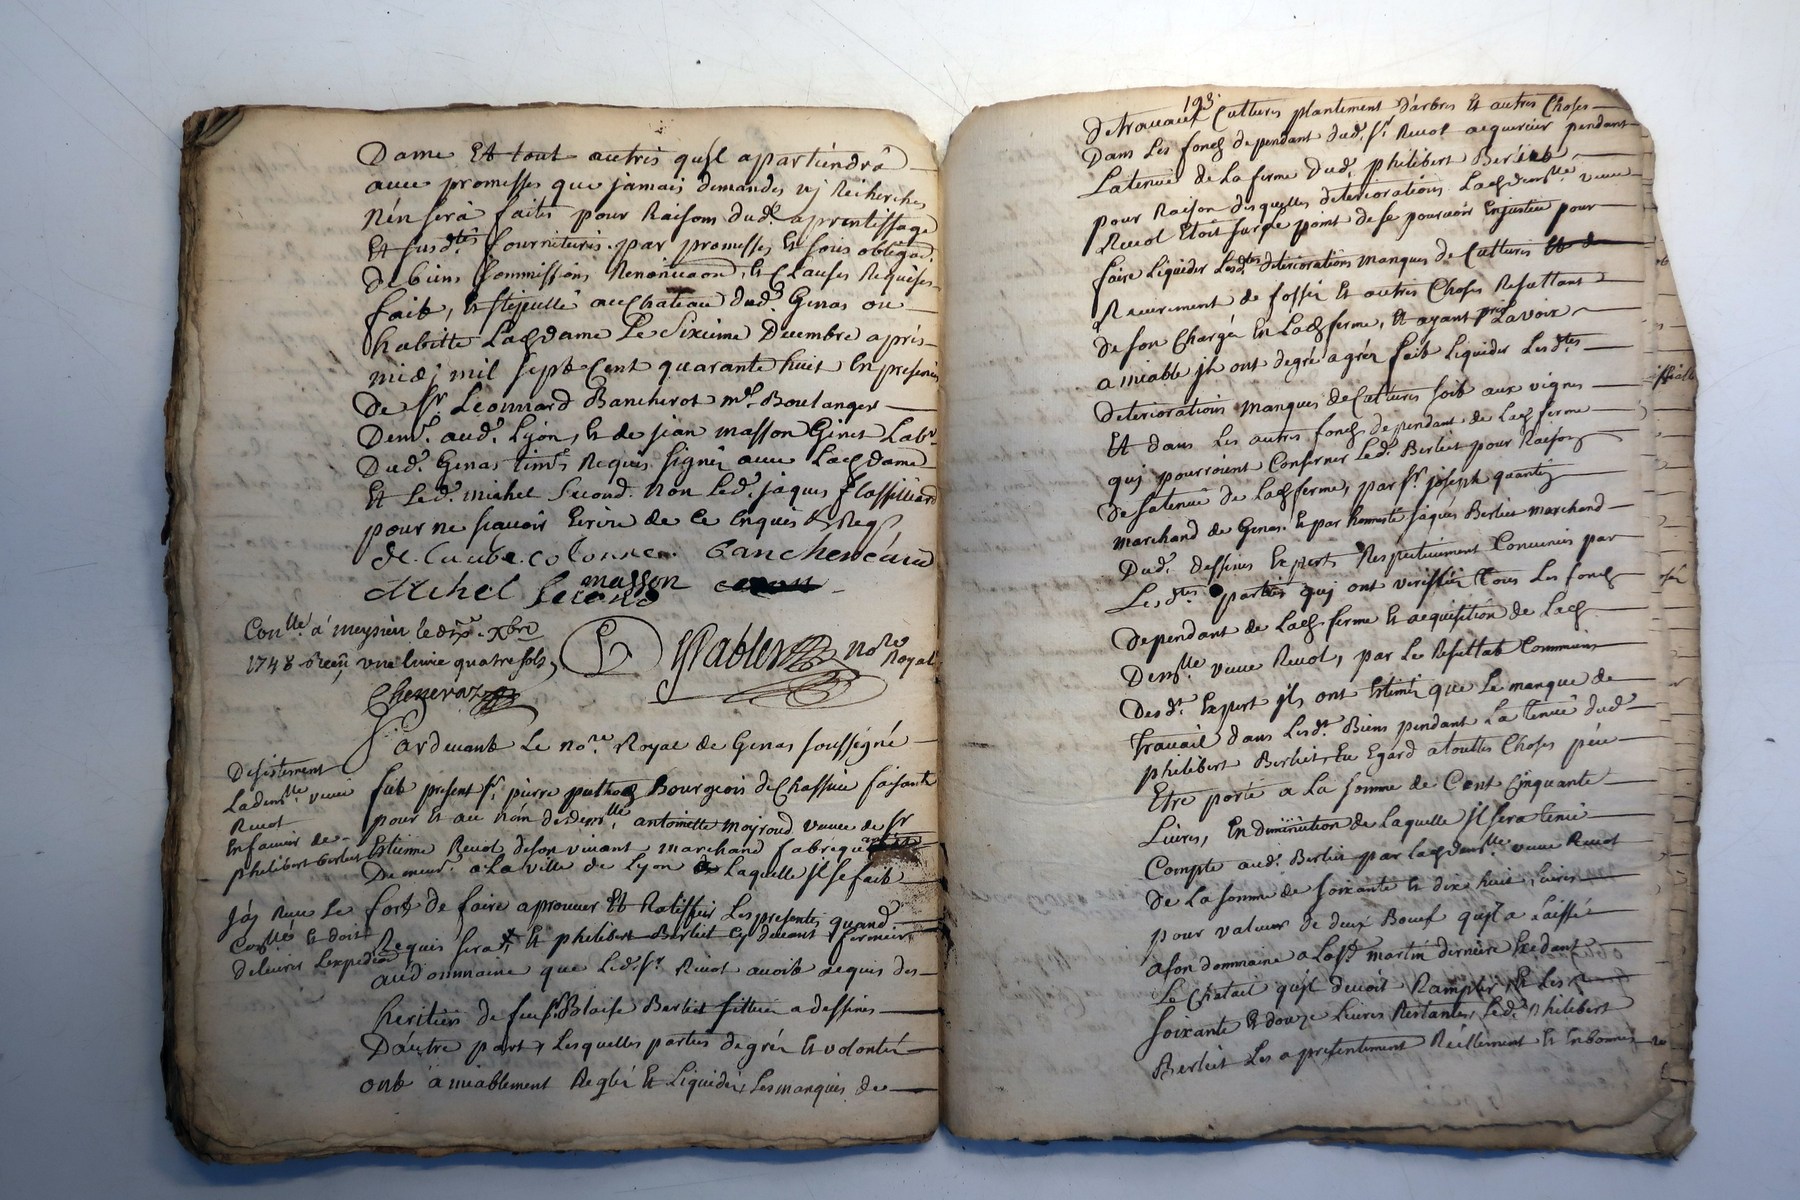 Dame Et tout autris qu'jl apartiendrâ
avec promesses que jamais demandes nj Recherches
n'en sérà faites pour Raisons dud. aprentissage
Et susd.tes fournituris. par promesses Et sous obligaõn.
De biens Soummissions Renonciaõn, Et Clauses Requises
fait, Et stipullé au Chateau dud. Genas ou
habitte Lad dame Le Sixieme Decembre aprés
midj mil sept Cent quarante huit En presences
De Sr. Leonnard Bancherot m.d Boulanger
Dem.t aud. Lyon, Et de jean masson Ginet Lab.r
Dud. Genas tem.s Requis. signér avec Lad Dame
Et Led. michel Second. Non Led. jaques flassilliard
pour ne sçavoir Ecrire de Ce Enquis & Req
de. Cuube. colonne. Banchereaud
Michel Second masson
Con.lle à meysieu le dix.e Xbre
1748 Receu une livre quatre sols,
Chenevaz
Pablet No.re Royal
Pardevant Le no.re Royal de Genas soussigné
Desistement
Lademlle veuve
Revol
En faveur de
philibert Berliet
fut present Sr. pierre Bourgeois de Chassieu faisant
pour Et au nom de dem.lle antoinette moyroud veuve de Sr
Estienne Revol de son vivant marchand fabrequant
Demeur. a La ville de Lyon Laquelle jl se fait
fort de faire aprouver Et Ratiffier Les presentes quand
Requis sera Et philibert Berliet cy devant fermier
j'ay Reçu Le
Con.llé Et dois
Delivrer L'expedition
au dommaine que Led. Sr Revol avoit acquis des
heritiers de feu Sr Blaise Berliet a dessines
D'autre part, Lesquelles parties de gré Et volonté
ont a miablement Reglé Et Liquidér Les manques de
193.
de travaux Cultures plantement d'arbres Et autres Choses
Dans Les fonds dependant dud. Sr Revol acquereur pendant
La tenue de La ferme Dud. philibert Berliet
pour Raison desquelles deteriorations Lad dem.lle veuve
Revol Etoit sur Le point de se pourvoir En justice pour
faire Liquider Lesd.tes deteriorations manques de Cultures
Recurement de fossés Et autres Choses Resultant
De son Chargé En Lad ferme, Et ayant pris La voix
amiable jls ont de gré a gréz fait Liquider Lesd.tes
deteriorations manques de Cultures soit aux vignes
Et dans Les autres fonds dependant de Lad ferme
quj pourroient Conserner Led. Berliet pour Raison
de sa tenue de Lad ferme, par Sr. joseph quantin
marchand de Genas. Et par honneste jâques Berliet marchand
Dud. dessines Experts Respectivement Convenus par
Lesd.tes parties quj ont veriffiér tous Les fonds
dependant de Lad ferme Et acquisition de Lad
Dem.lle veuve Revol, par Le Resultat Commun
Desd.t Expert jls ont Estimér que Le manque de
travail dans Lesd.t Biens pendant La tenue dud
philibert Berliet, Eu Egard a toutes Choses peu
Etre porté a La somme de Cent Cinquante
Livres, En diminution de Laquelle jl sera tenu
Compte aud. Berliet par Lad dem.lle veuve Revol
de La somme de soixante Et dix huit Livres
pour valeur de deux Bœuf qu'jl a Laissé
a son dommaine a La St. martin derniere
Le Chetail qu'jl devoit Remplir Et Les
soixante Et douze Livres Restantes, Led. Philibert
Berliet Les a presentement Réellement Et En bonnes